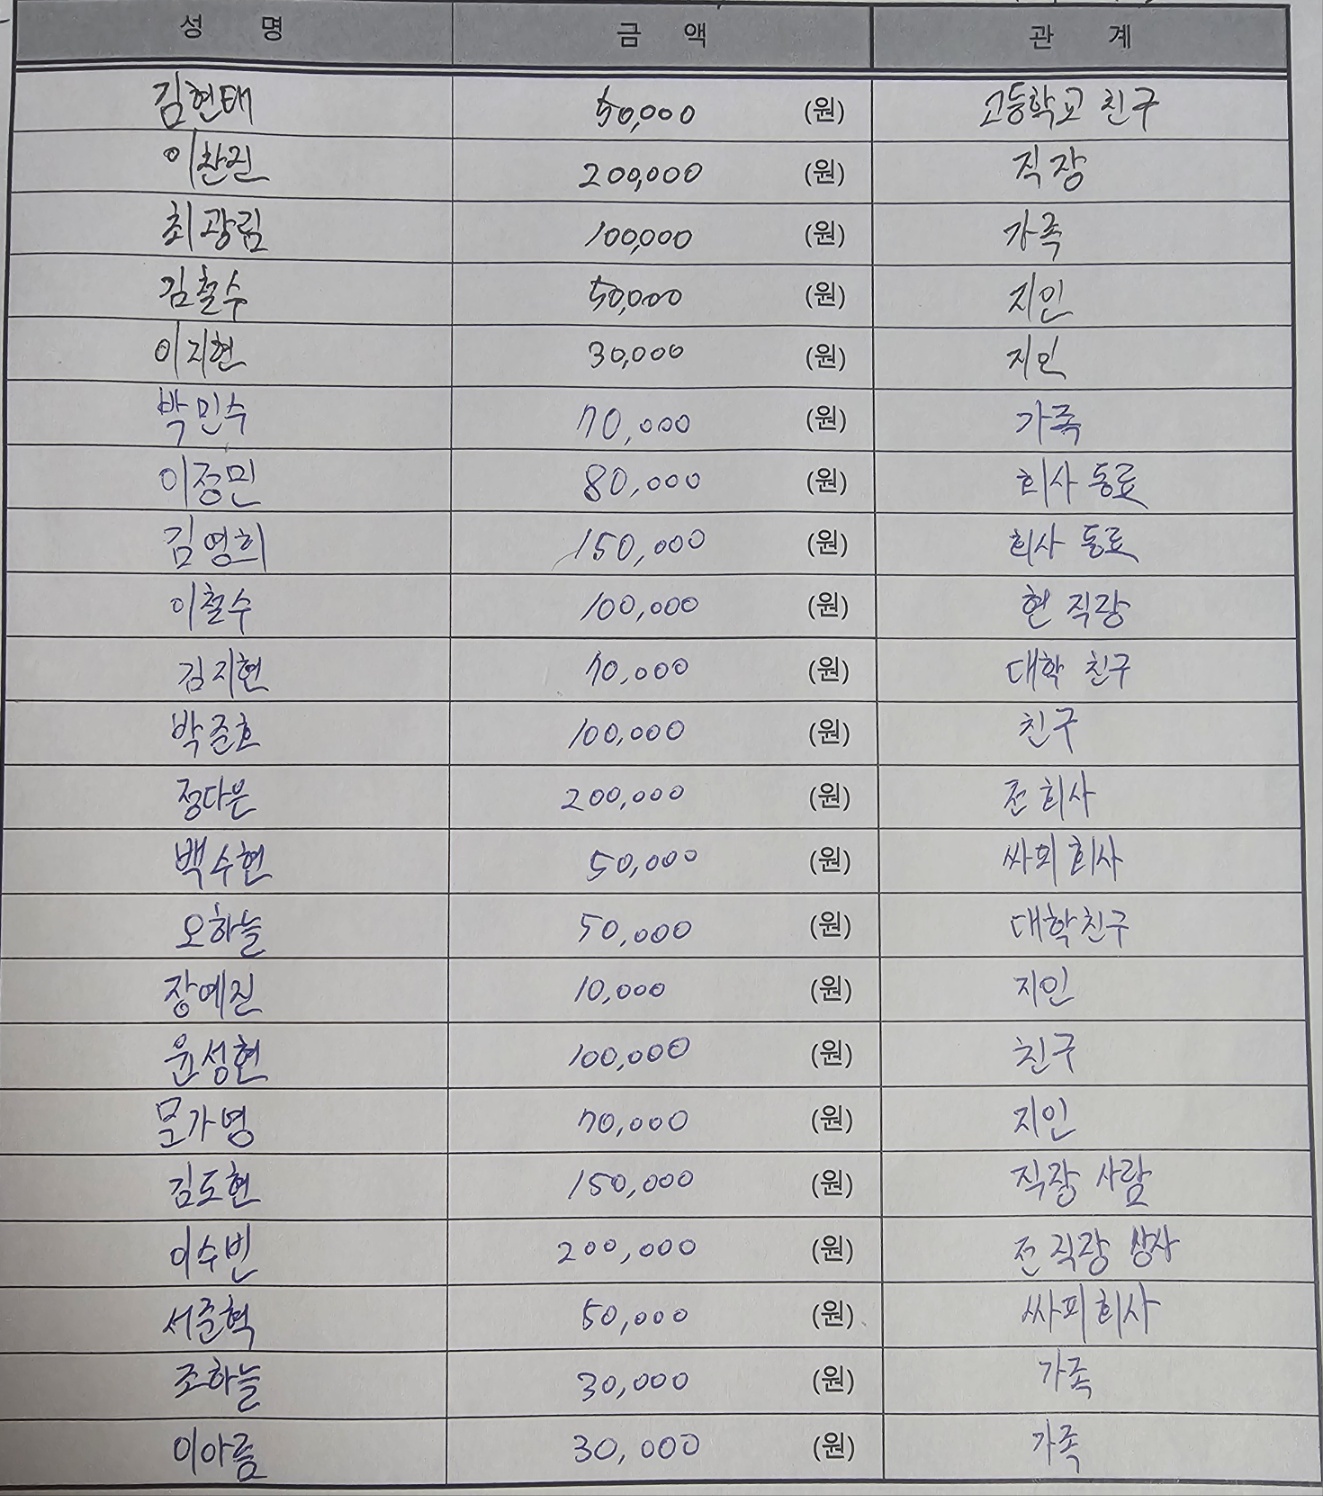 성 명 금 액 관 계
김현태 50,000 (원) 고등학교 친구
이찬진 200,000 (원) 직장
최광림 100,000 (원) 가족
김철수 50,000 (원) 지인
이지현 30,000 (원) 지인
박민수 70,000 (원) 가족
이정민 80,000 (원) 회사 동료
김영희 150,000 (원) 회사 동료
이철수 100,000 (원) 현 직장
김지현 70,000 (원) 대학 친구
박준호 100,000 (원) 친구
정다은 200,000 (원) 전 회사
백수현 50,000 (원) 싸피 회사
오하늘 50,000 (원) 대학친구
장예진 10,000 (원) 지인
윤성현 100,000 (원) 친구
문가영 70,000 (원) 지인
김도현 150,000 (원) 직장 사람
이수빈 200,000 (원) 전 직장 상사
서준혁 50,000 (원) 싸피 회사
조하늘 30,000 (원) 가족
이아름 30,000 (원) 가족